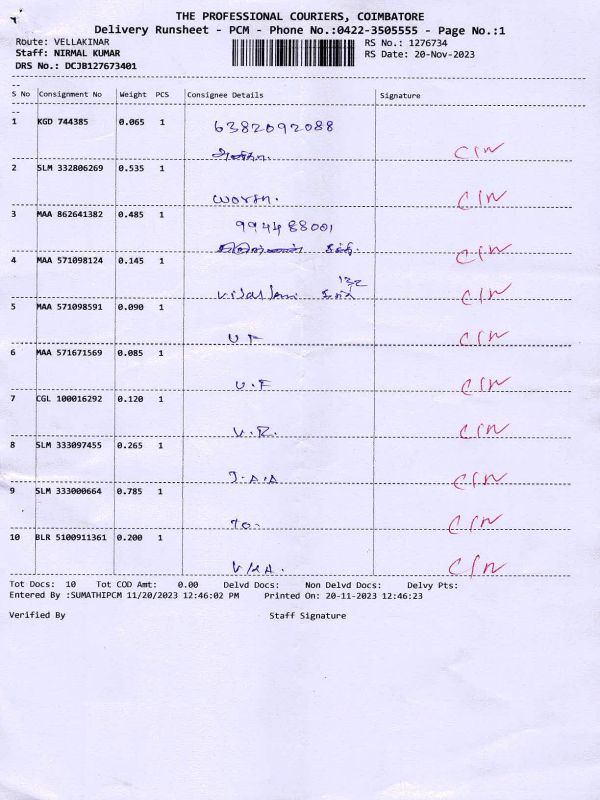 THE PROFESSIONAL COURIERS, COIMBATORE
Delivery Runsheet - PCM - Phone No.:0422-3505555 - Page No.:1
Route: VELLAKINAR RS No.: 1276734
Staff: NIRMAL KUMAR RS Date: 20-Nov-2023
DRS No.: DCJB127673401
S No Consignment No Weight PCS Consignee Details Signature
1 KGD 744385 0.065 1 6382092088
CIN
2 SLM 332806269 0.535 1
CIN
3 MAA 862641382 0.485 1 994488001
CIN
4 MAA 571098124 0.145 1
132
CIN
5 MAA 571098591 0.090 1
U F CIN
6 MAA 571671569 0.085 1
U.F CIN
7 CGL 100016292 0.120 1
V.R. CIN
8 SLM 333097455 0.265 1
J.A.A CIN
9 SLM 333000664 0.785 1
CIN
10 BLR 5100911361 0.200 1
CIN
Tot Docs: 10 Tot COD Amt: 0.00 Delvd Docs: Non Delvd Docs: Delvy Pts:
Entered By :SUMATHIPCM 11/20/2023 12:46:02 PM Printed On: 20-11-2023 12:46:23
Verified By Staff Signature